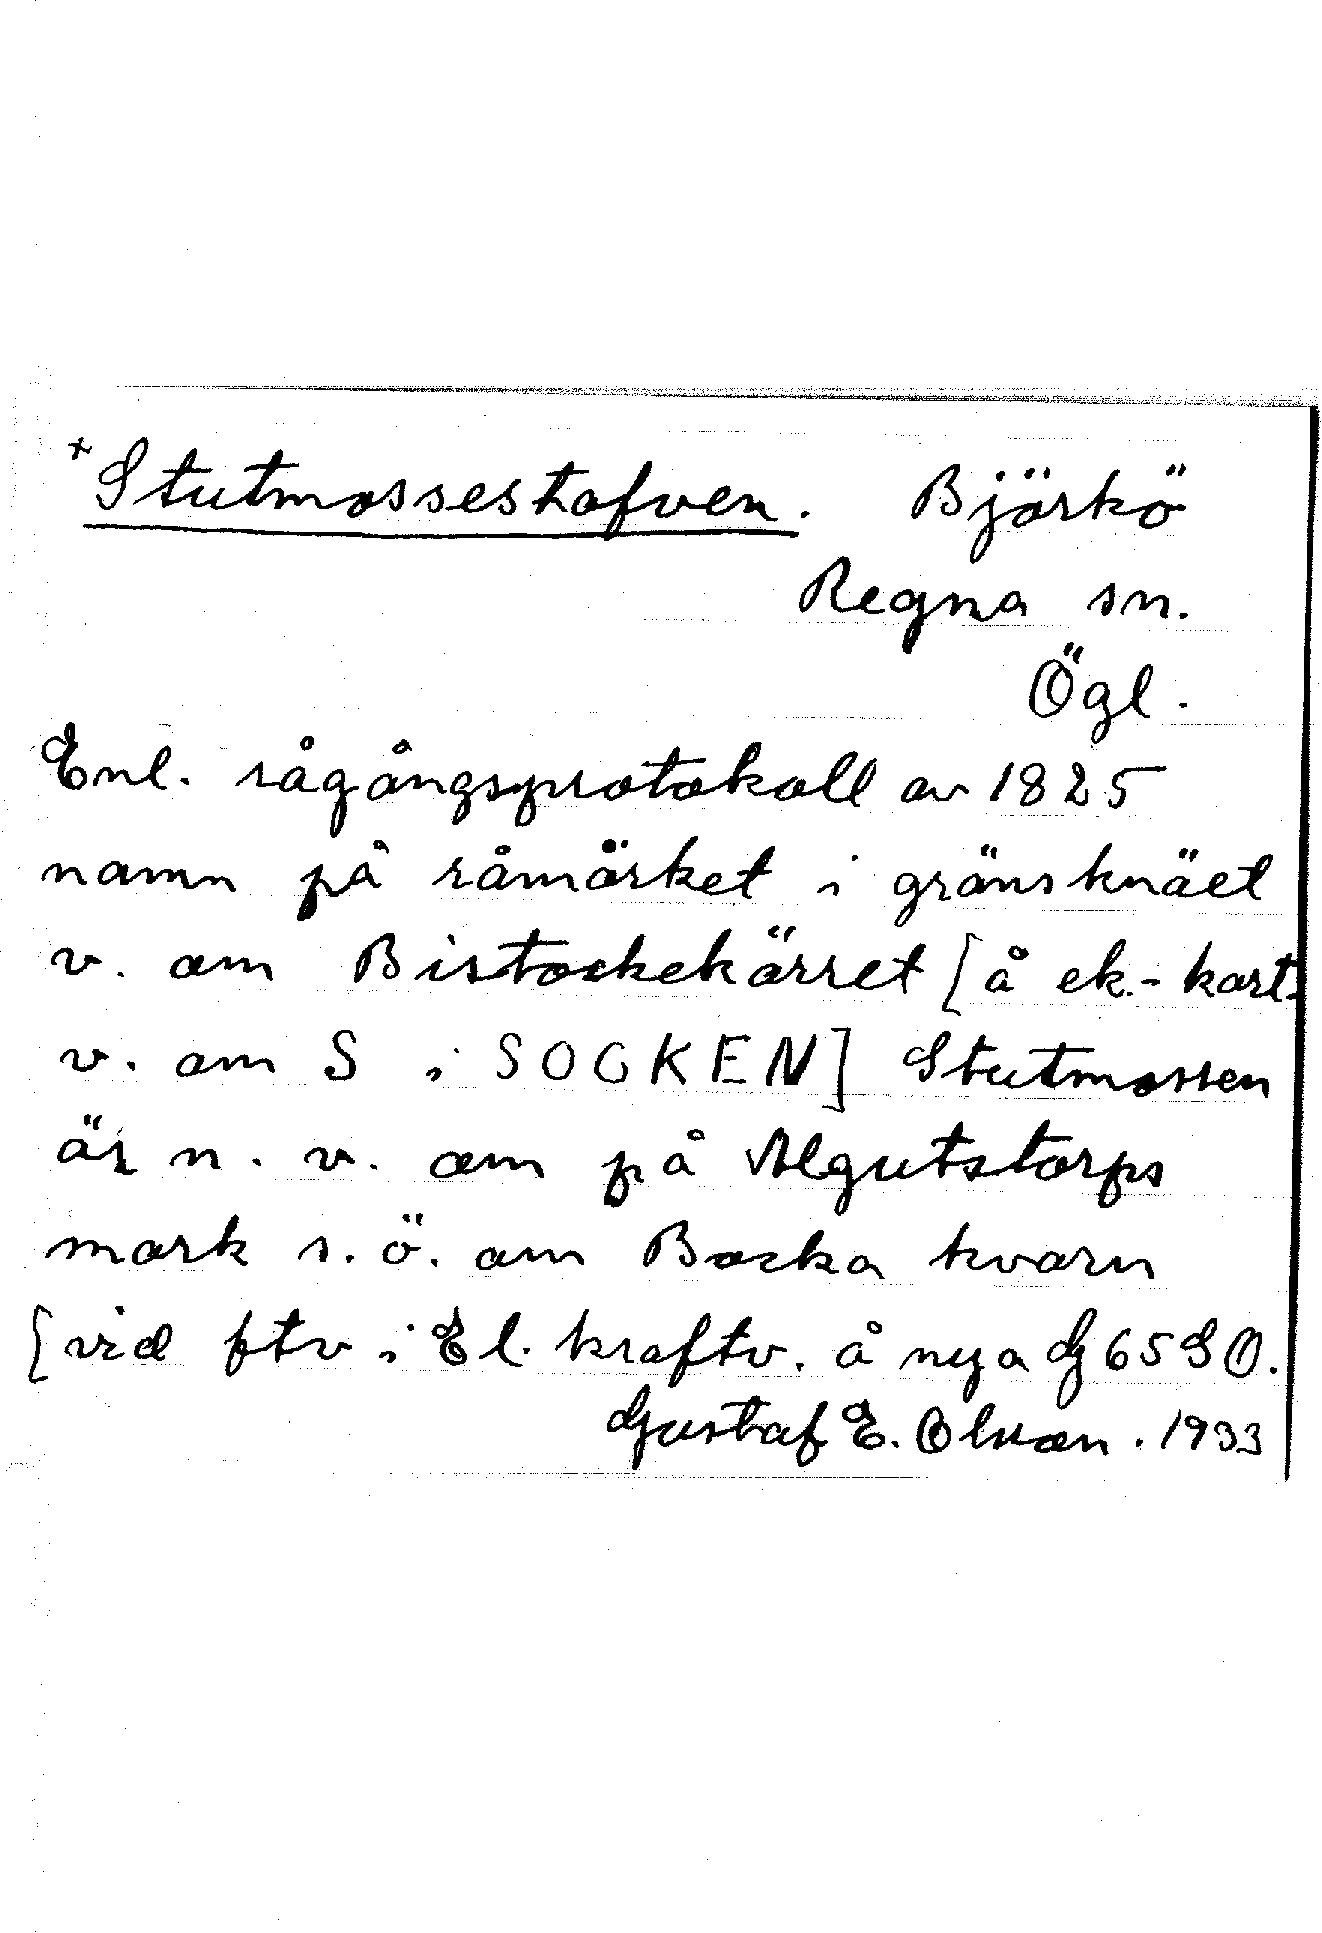 +Stutmossestafven. Björkö
Regna sn.
Ögl.
Enl. rågångsprotokoll av 1825
namn på råmärket i gränsknäet
v. om Bistockekärret [å ek.-kart.
v. om S i SOCKEN] Stutmossen
är n. v. om på Algutstorps
mark s. ö. om Bocka kvarn
[vid ftv i El. kraftv. å nya G65SO.
Gustaf E. Olsson. 1933